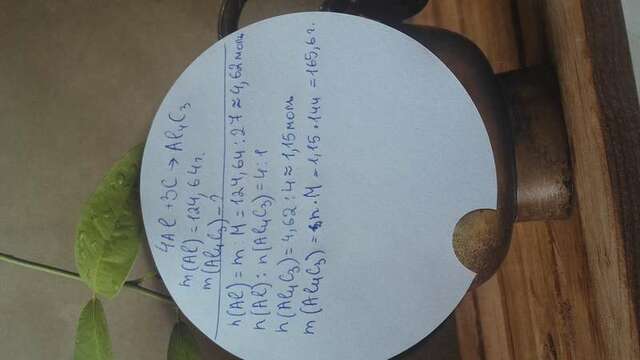 4Al + 3C → Al₄C₃
m(Al) = 124,64г.
m(Al₄C₃) = ?
n(Al) = m : M = 124,64 : 27 ≈ 4,62 моль
n(Al) : n(Al₄C₃) = 4 : 1
n(Al₄C₃) = 4,62 : 4 ≈ 1,15 моль
m(Al₄C₃) = n · M = 1,15 · 144 = 165,6 г.